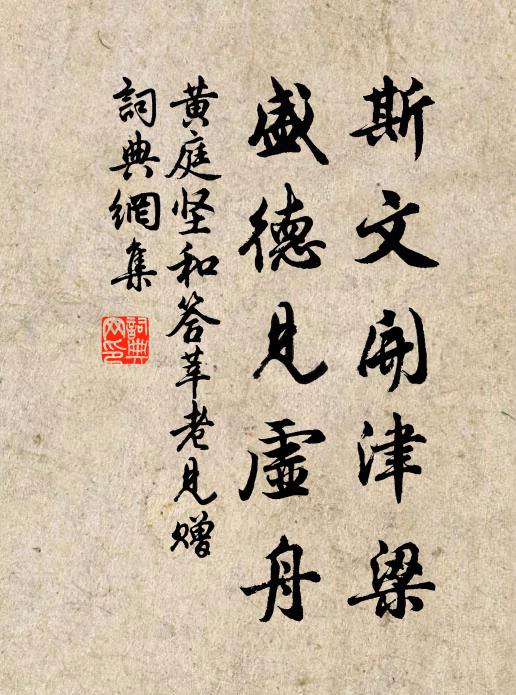 斯文開津梁
盛德見虛舟
黃庭坚和答莘老見赠
詞典網集
詞典網印